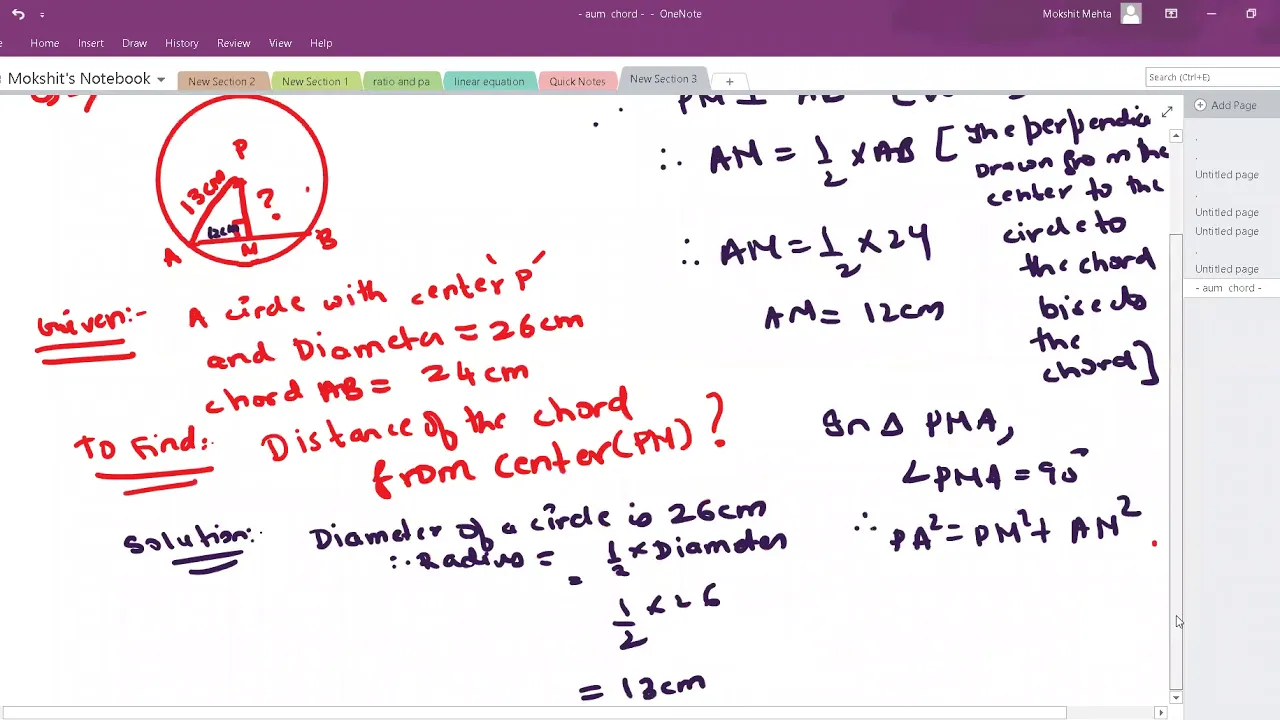 - aum chord - - OneNote
Mokshit Mehta
Home Insert Draw History Review View Help
Mokshit's Notebook
New Section 2 New Section 1 ratio and pa linear equation Quick Notes New Section 3 +
Search (Ctrl+E)
Add Page
Untitled page
Untitled page
Untitled page
Untitled page
- aum chord -
P
13cm
?
12cm
A M B
Given:- A circle with center 'P'
and Diameter = 26cm
chord AB = 24cm
To Find:- Distance of the chord
from center (PM) ?
Solution:- Diameter of a circle is 26cm
∴ Radius = 1/2 × Diameter
= 1/2 × 26
= 13cm
PM ⊥ AB
∴ AM = 1/2 × AB [ The perpendic
Drawn from the
center to the
circle to
the chord
bisects
the
chord ]
∴ AM = 1/2 × 24
AM = 12cm
In Δ PMA,
∠PMA = 90°
∴ PA² = PM² + AM²